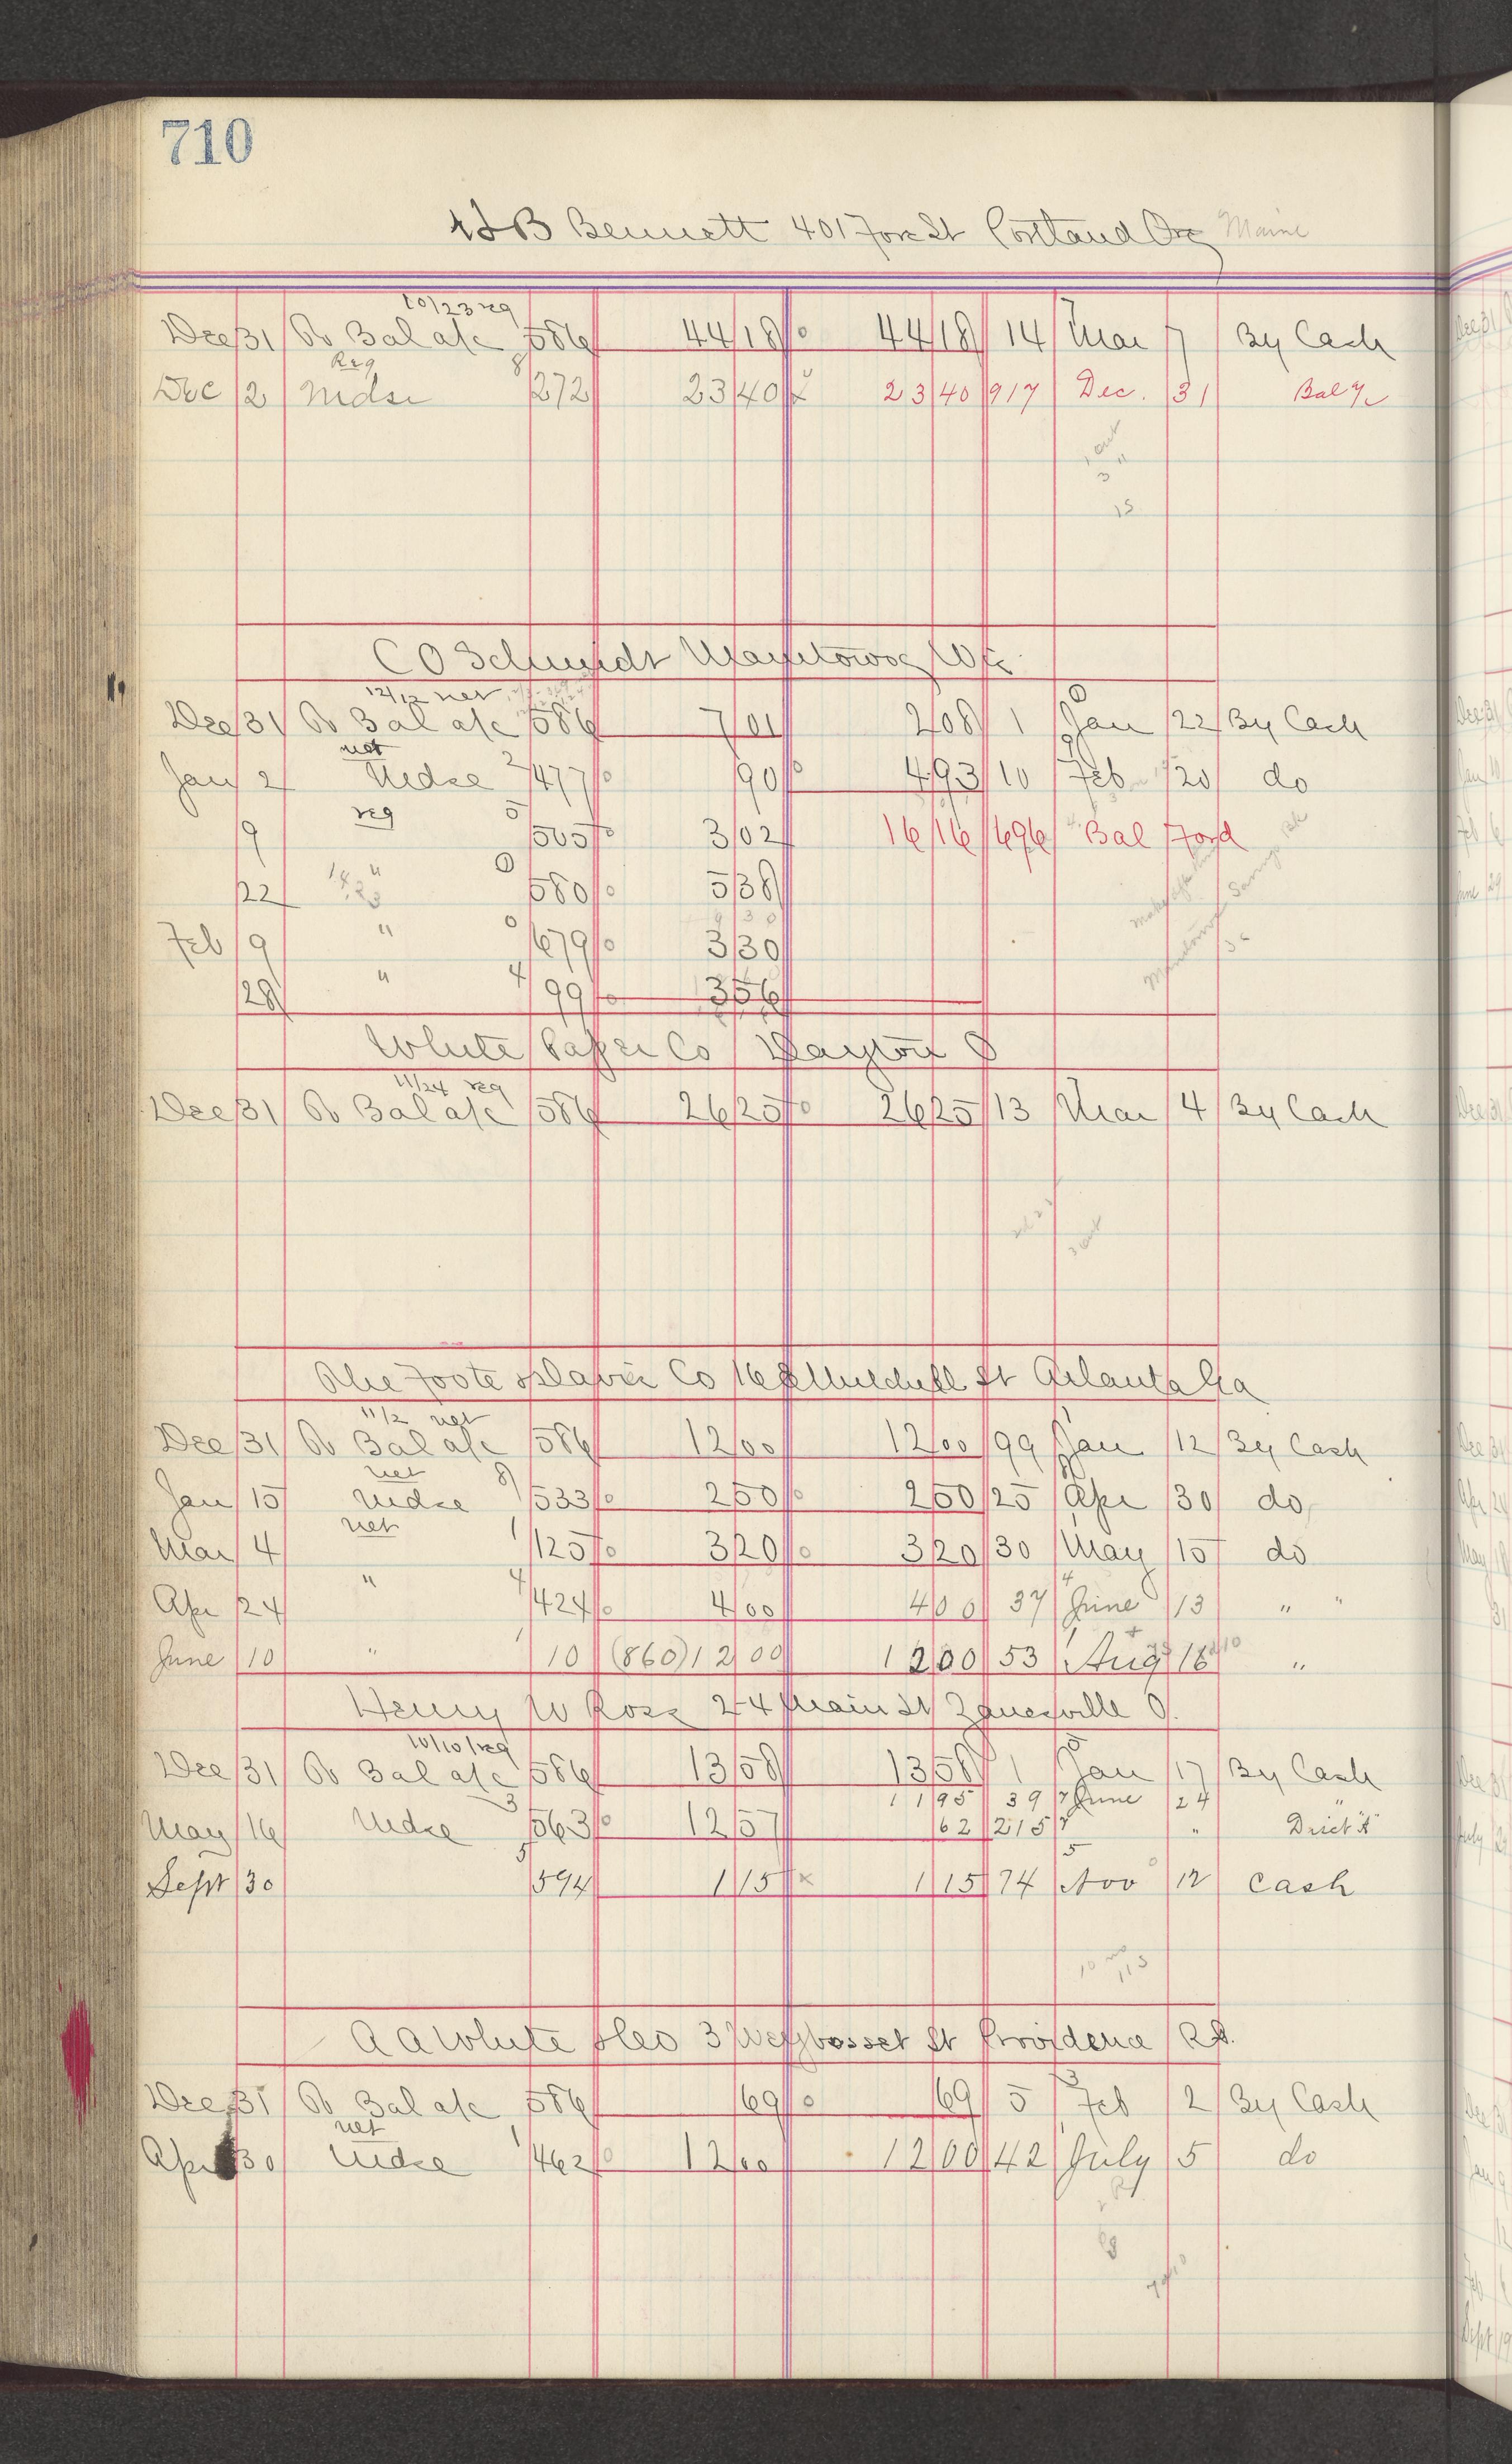 710
J B Bennett 401 Fore St Portland Org Maine
10/23 reg
Dec 31 To Bal a/c 586 44 18 o 44 18 14 Mar 7 By Cash
Reg 8
Dec 2 Mdse 272 23 40 23 40 917 Dec. 31 Bal
1 out
3 "
15
C O Schmidt Manitowoc Wis
12/12 net
Dec 31 To Bal a/c 586 7 01 2 08 1 Jan 22 By Cash
net
Jan 2 Mdse 2 477 o 90 o 4 93 10 Feb 20 do
reg 5
9 505 o 3 02 16 16 696 Bal Ford
22 " 580 o 5 38
Feb 9 " 0 679 o 3 30
28 " 4 99 o 3 56
White Paper Co Dayton O
11/24 reg
Dec 31 To Bal a/c 586 26 25 o 26 25 13 Mar 4 By Cash
3 out
The Foote & Davies Co 16 Mitchell St Atlanta Ga
11/2 net
Dec 31 To Bal a/c 586 12 00 12 00 99 Jan 12 By Cash
net 8
Jan 15 Mdse 533 o 2 50 o 2 50 25 Apr 30 do
net
Mar 4 1 125 o 3 20 o 3 20 30 May 15 do
Apr 24 " 4 424 o 4 00 4 00 37 June 13 " "
June 10 " 1 10 (860) 12 00 12 00 53 Aug 16 "
Henry W Rose 24 Main St Zanesville O.
10/10/reg
Dec 31 To Bal a/c 586 13 58 13 58 1 Jan 17 By Cash
11 95 39 June 24 "
May 16 Mdse 3 563 o 12 57 62 215 " Disct "A"
Sept 30 5 594 1 15 x 1 15 74 Nov 12 Cash
A A White & Co 3 Weybosset St Providence R.I.
Dec 31 To Bal a/c 586 69 o 69 5 Feb 2 By Cash
net
Apr 30 Mdse 1 462 o 12 00 12 00 42 July 5 do